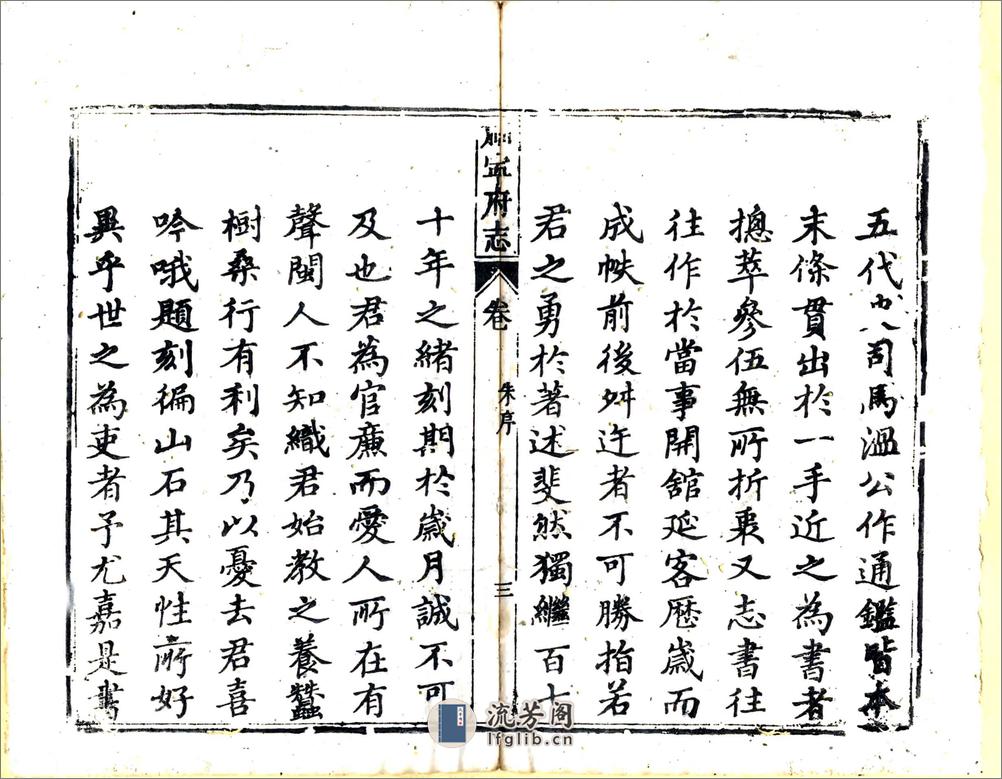 五代史司馬溫公作通鑑皆本
末條貫出於一手近之為書者
摠萃參伍無所折衷又志書往
往作於當事開舘延客歷歲而
成帙前後舛迕者不可勝指若
君之勇於著述斐然獨繼百七
府志
卷
朱序
三
十年之緒刻期於歲月誠不可
及也君為官廉而愛人所在有
聲閩人不知織君始教之養蠶
樹桑行有利矣乃以憂去君喜
吟哦題刻徧山石其天性所好
異乎世之為吏者予尤嘉是書
流芳阁
lfglib.cn